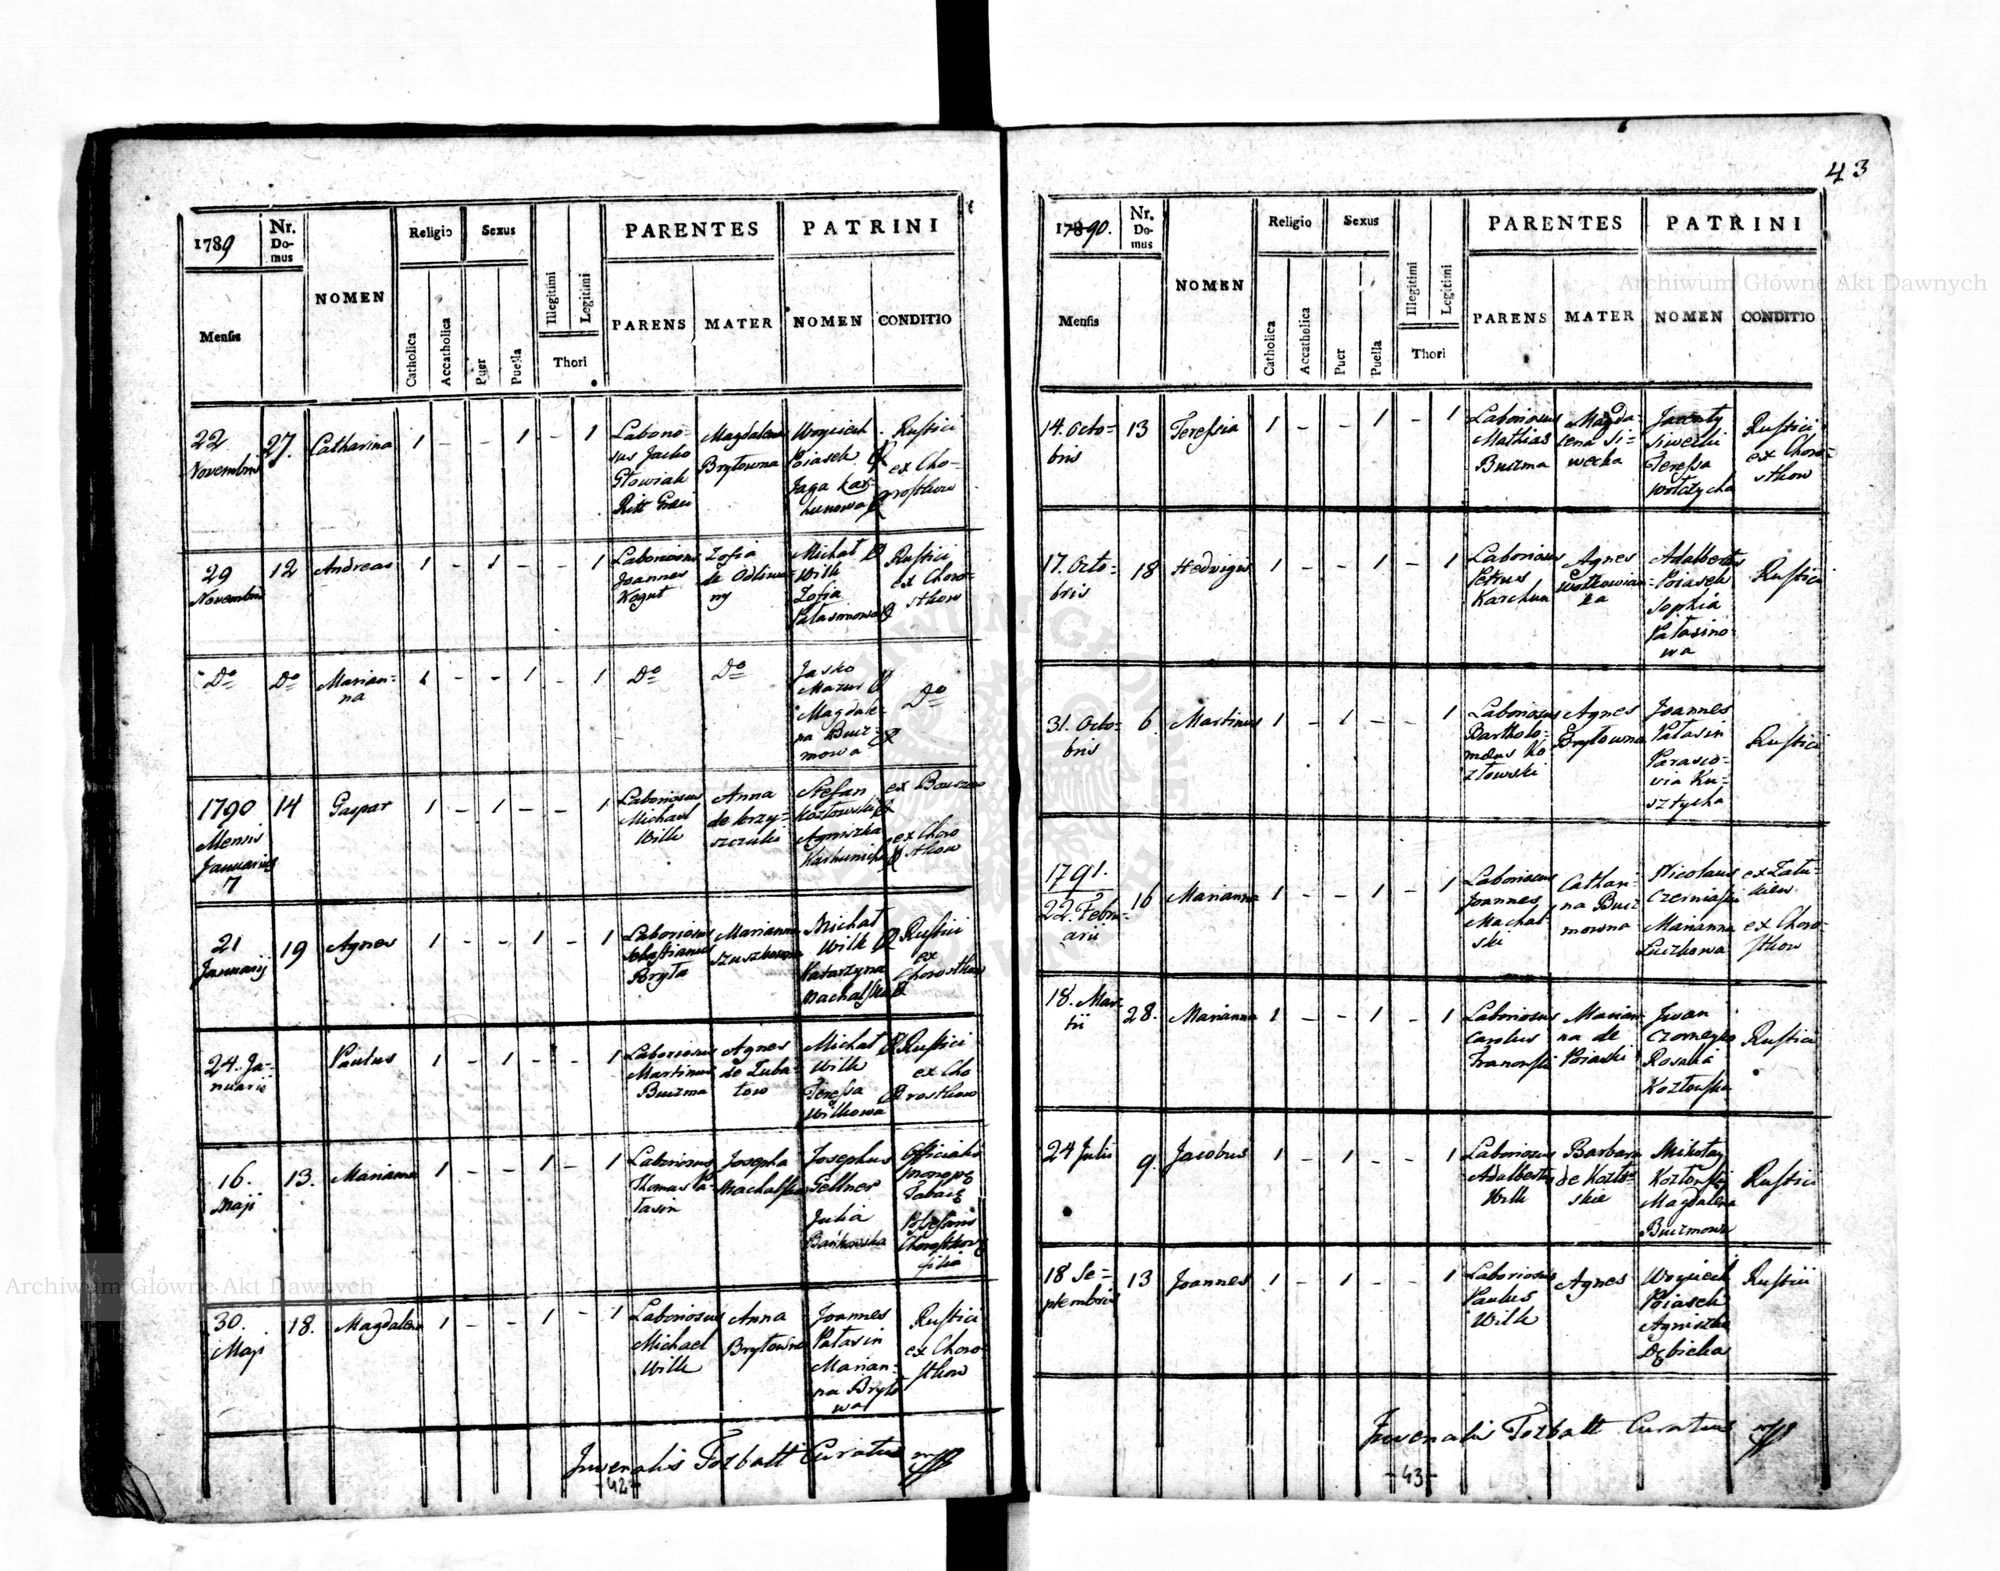 43
1789
Nr. Domus
NOMEN
Religio
Sexus
PARENTES
PATRINI
Mensis
Catholica
Accatholica
Puer
Puella
Illegitimi
Legitimi
Thori
PARENS
MATER
NOMEN
CONDITIO
22 Novembris 27. Catharina 1 - - 1 - 1 Laboriosus Jacko Głowiak Ritt Graeci Magdalena Brytowna Woyciech Poiasek Jaga Karhunowa Rustici ex Chorosthow
29 Novembris 12 Andreas 1 - 1 - - 1 Laboriosus Joannes Kogut Zofia de Odliwany Michał Wilk Zofia Pałasinowa Rustici ex Chorosthow
Do Do Marianna 1 - - 1 - 1 Do Do Jasko Mazur Magdalena Buczmowa Do
1790 Mensis Januarius 7 14 Gaspar 1 - 1 - - 1 Laboriosus Michael Wilk Anna de Krzyszczuki Stefan Kozłowski Agniszka ex Chorosthow
21 Januarij 19 Agnes 1 - - 1 - 1 Laboriosus Sebastianus Bryła Marianna Michał Wilk Katarzyna Machalska Rustici ex Chorosthow
24. Januarii Paulus 1 - 1 - - 1 Laboriosus Martinus Buczma Agnes de Lubatow Michał Wilk Teressa Wilkowa Rustici ex Chorosthow
16. Maji 13. Marianna 1 - - 1 - 1 Laboriosus Thomas Pałasin Josepha Machalska Josephus Gellner Julia Bańkowska Officialis filia
30. Maji 18. Magdalena 1 - - 1 - 1 Laboriosus Michael Wilk Anna Brytowna Joannes Pałasin Marianna Bryłowa Rustici ex Chorosthow
Juvenalis Tozbatt Curatus mpp
-42-
1790.
Nr. Domus
NOMEN
Religio
Sexus
PARENTES
PATRINI
Mensis
Catholica
Accatholica
Puer
Puella
Illegitimi
Legitimi
Thori
PARENS
MATER
NOMEN
CONDITIO
14. Octobris 13 Teressia 1 - - 1 - 1 Laboriosus Mathias Buczma Magdalena Siwecka Jwanty Siwecki Teressa Wołczycha Rustici ex Chorosthow
17. Octobris 18 Hedvigis 1 - - 1 - 1 Laboriosus Petrus Karchun Agnes Wołkowianka Adalbertus Poiasek Sophia Pałasinowa Rustici
31. Octobris 6 Martinus 1 - 1 - - 1 Laboriosus Bartholomaeus Kozłowski Agnes Brytowna Joannes Pałasin Parascovia Kusztycha Rustici
1791. 22. Februarii 16 Marianna 1 - - 1 - 1 Laboriosus Joannes Machalski Catharina Buczmowna Nicolaus Czerniaski Marianna Luczkowa ex Załukiew ex Chorosthow
18. Martii 28. Marianna 1 - - 1 - 1 Laboriosus Carolus Franowski Marianna de Poiaski Jwan Czornegko Rosalia Kozłowska Rustici
24 Julii 9. Jacobus 1 - 1 - - 1 Laboriosus Adalbertus Wilk Barbara de Kozłoskie Mikołay Kozłowski Magdalena Buczmowa Rustici
18 Septembris 13 Joannes 1 - 1 - - 1 Laboriosus Paulus Wilk Agnes Woyciech Poiasek Agniszka Dębicka Rustici
Juvenalis Tozbatt Curatus mpp
-43-
Archiwum Główne Akt Dawnych
Archiwum Główne Akt Dawnych